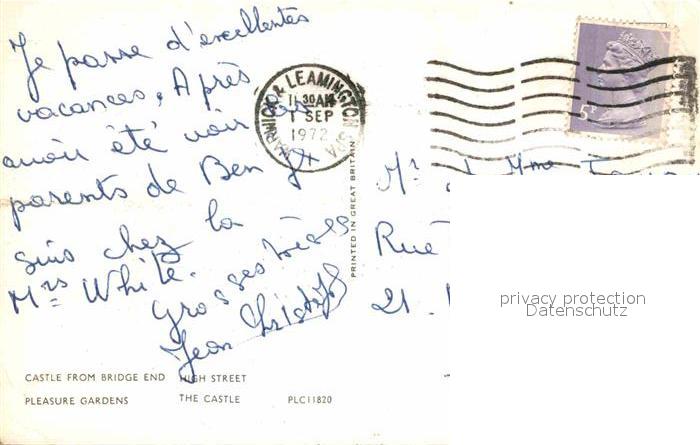 Je passe d'excellentes
vacances, Après
avoir été voir les
parents de Ben je
suis chez la
Mrs White.
Grosses bises
Jean Christophe
WARWICK & LEAMINGTON SPA
11 30 AM
1 SEP
1972
5P
PRINTED IN GREAT BRITAIN
Mr & Mme
Rue
21
privacy protection
Datenschutz
CASTLE FROM BRIDGE END HIGH STREET
PLEASURE GARDENS THE CASTLE PLC11820